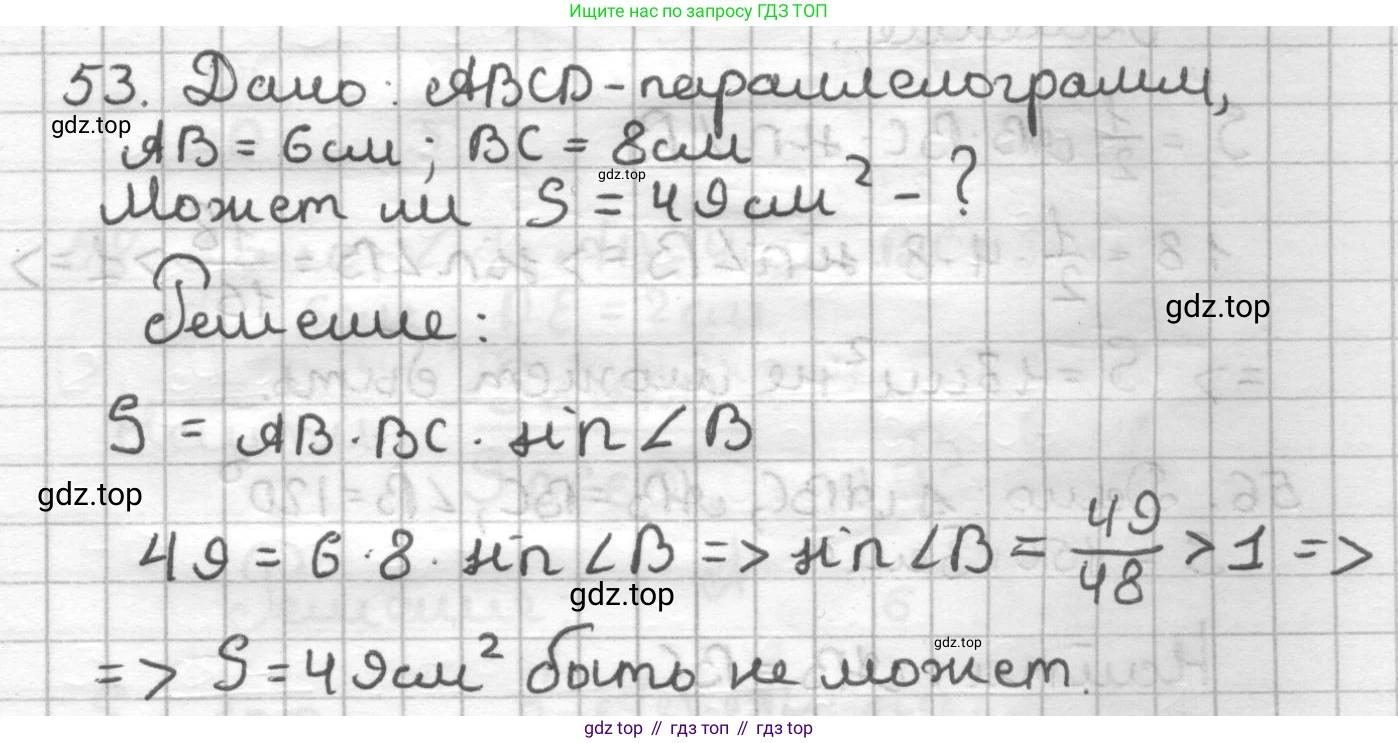 Ищите нас по запросу ГДЗ ТОП
53. Дано: ABCD - параллелограмм,
gdz.top
AB = 6 см; BC = 8 см
gdz.top
Может ли S = 49 см² - ?
gdz.top
Решение:
S = AB · BC · sin ∠B
gdz.top
49 = 6 · 8 · sin ∠B => sin ∠B = 49/48 > 1 =>
gdz.top
gdz.top
=> S = 49 см² быть не может.
gdz top // гдз топ // гдз top